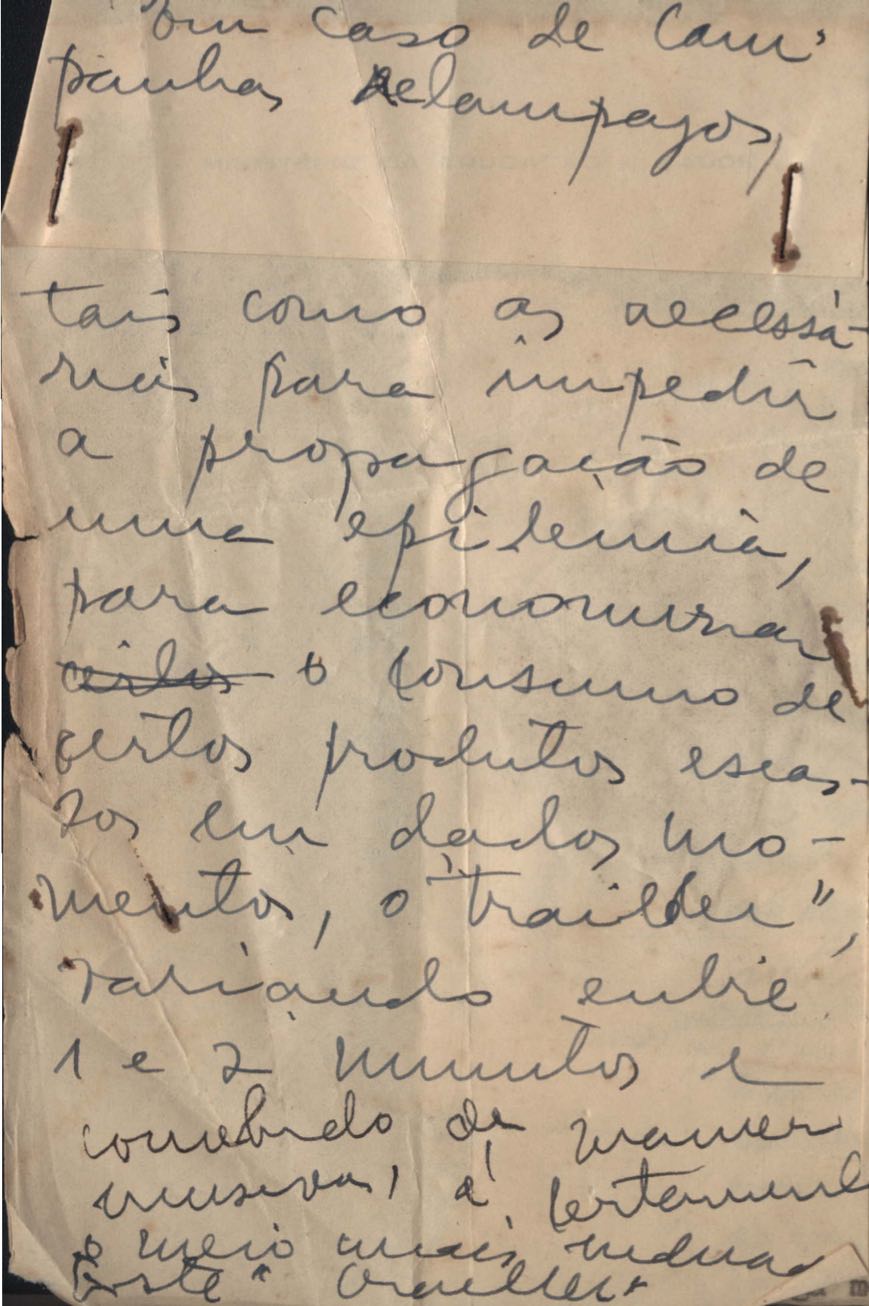 Em caso de Cam-
panhas Relampagos,
tais como as necessá-
rias para impedir
a propagação de
uma epidemia,
para economizar
certos o consumo de
certos produtos escas-
sos em dados mo-
mentos, o "trailer",
variando entre
1 e 2 minutos e
concebido de maneira
incisiva, é certamente
o meio mais indicado
Este "trailer"